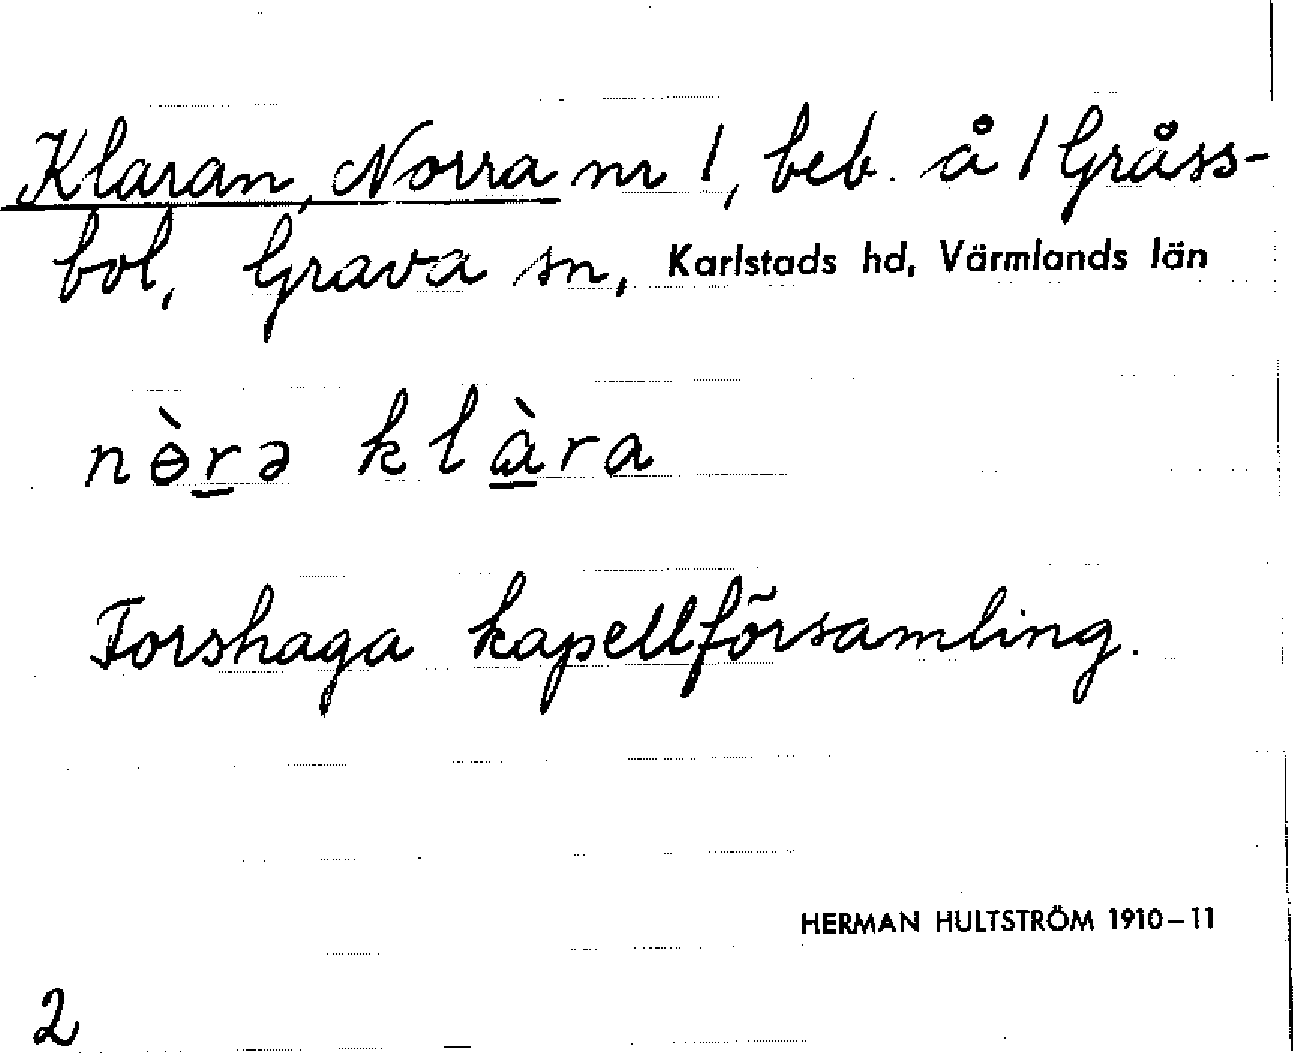 Klaran, Norra nr 1, beb. å 1 Gråss-
bol, Grava sn, Karlstads hd, Värmlands län
nɵ̀r̲ə klɑ̲̀ra
Forshaga kapellförsamling.
HERMAN HULTSTRÖM 1910–11
2